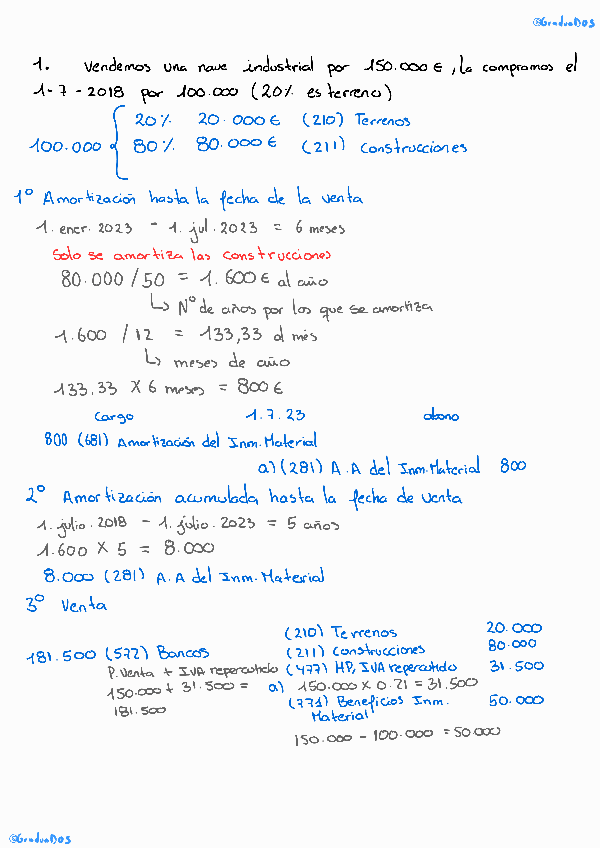 @GraduaDOS
1. Vendemos una nave industrial por 150.000 €, la compramos el
1-7-2018 por 100.000 (20% es terreno)
20% 20.000 € (210) Terrenos
100.000 80% 80.000 € (211) Construcciones
1º Amortización hasta la fecha de la venta
1. ener. 2023 - 1. jul. 2023 = 6 meses
Solo se amortiza las construcciones
80.000/50 = 1.600 € al año
↳ Nº de años por los que se amortiza
1.600 / 12 = 133,33 al mes
↳ meses de año
133,33 X 6 meses = 800 €
Cargo 1.7.23 abono
800 (681) Amortización del Inm. Material
a) (281) A.A del Inm. Material 800
2º Amortización acumulada hasta la fecha de venta
1. julio. 2018 - 1. julio. 2023 = 5 años
1.600 X 5 = 8.000
8.000 (281) A.A del Inm. Material
3º Venta
(210) Terrenos 20.000
(211) Construcciones 80.000
181.500 (572) Bancos
P. Venta + IVA repercutido (477) HP, IVA repercutido 31.500
150.000 + 31.500 = a) 150.000 X 0.21 = 31.500
181.500
(771) Beneficios Inm. 50.000
Material
150.000 - 100.000 = 50.000
@GraduaDOS